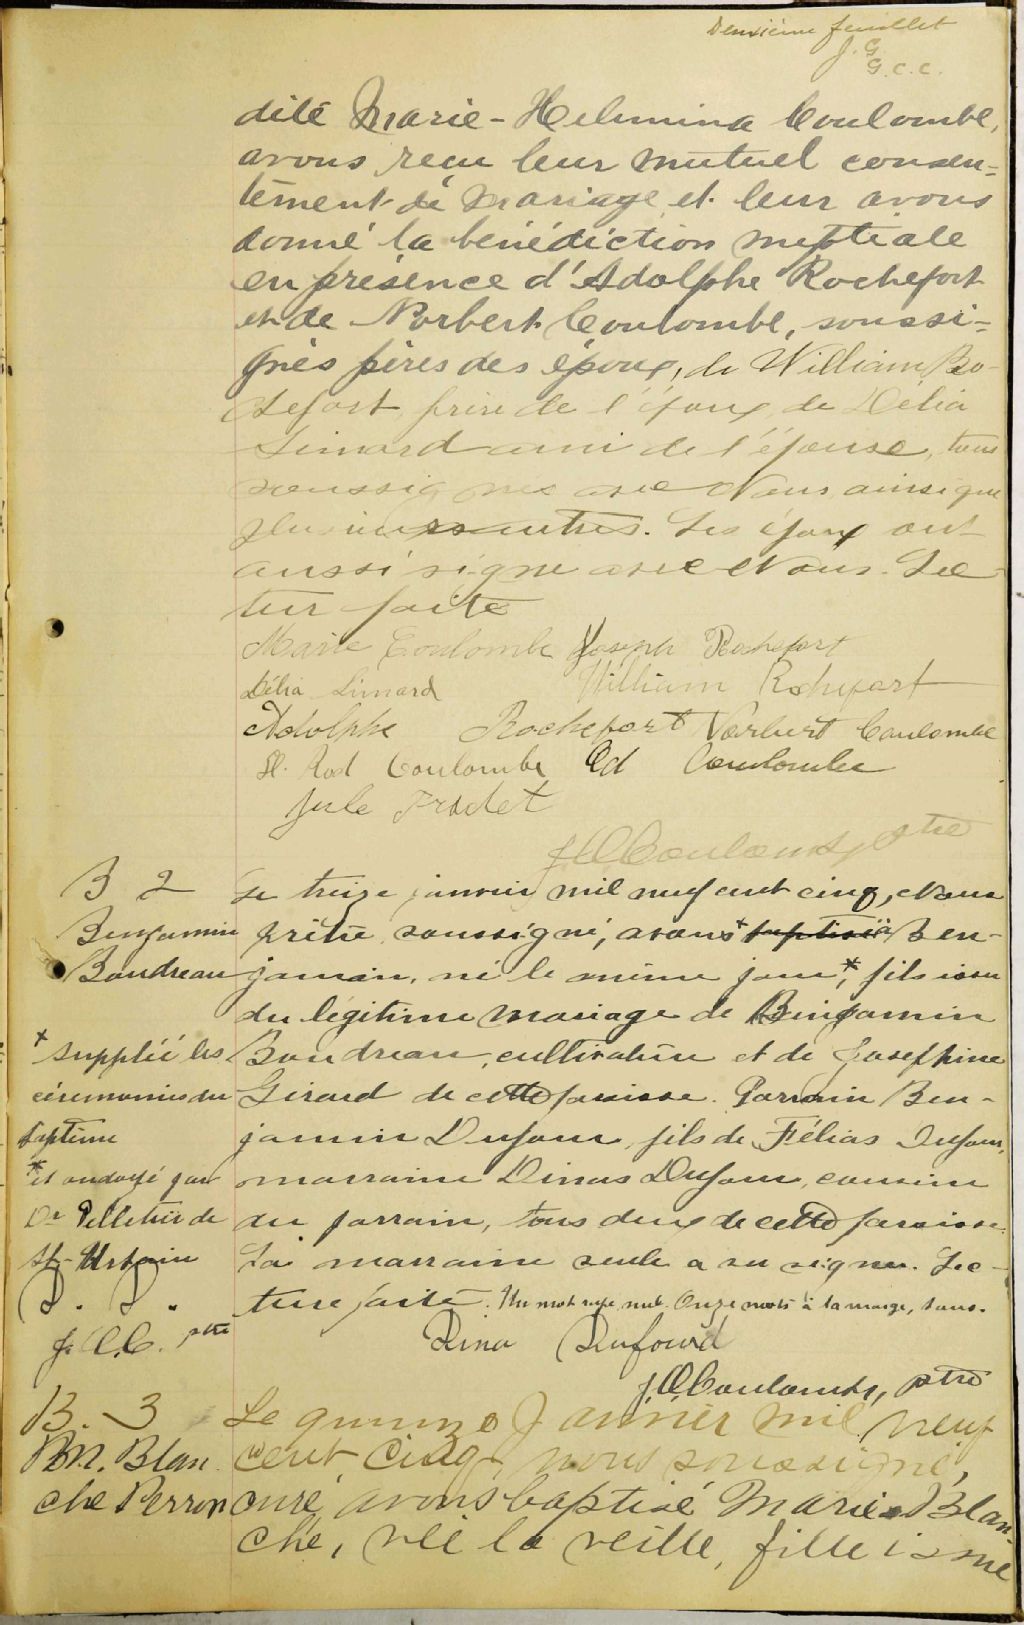 Deuxième feuillet
J. G.
G. C. C.
dite Marie-Helmina Coulombe,
avons reçu leur mutuel consen=
tement de mariage et leur avons
donné la bénédiction nuptiale
en présence d'Adolphe Rochefort
et de Norbert Coulombe, soussi=
gnés pères des époux, de William Ro-
chefort, frère de l'époux, de Délia
Simard amie de l'épouse, tous
soussignés avec Nous ainsi que
plusieurs autres. Les époux ont
aussi signé avec Nous. Lec-
ture faite
Marie Coulombe Joseph Rochefort
Délia Simard William Rochefort
Adolphe Rochefort Norbert Coulombe
Rod Coulombe Ed Coulombe
Jule
J A Coulombe, ptre
B 2
Benjamin
Boudreau
Le treize janvier mil neuf cent cinq, Nous
prêtre soussigné, avons * baptisé à Ben-
jamin, né le même jour *, fils issu
du légitime mariage de Benjamin
Boudreau, cultivateur et de Josephine
Girard de cette paroisse. Parrain Ben-
jamin Dufour, fils de Félias Dufour,
marraine Dinas Dufour, cousine
du parrain, tous deux de cette paroisse.
La marraine seule a su signer. Lec-
ture faite. Un mot rayé nul. Onze mots à la marge, bons.
* suppléé les
cérémonies du
baptême
* et ondoyé par
Dr Pelletier de
St-Urbain
D. D.
J. A. C. ptre
Dina Dufour
J. A. Coulombe, ptre
B. 3
M. Blan
che Perron
Le quinze Janvier mil neuf
cent cinq, nous soussigné,
curé, avons baptisé Marie Blan-
che, née la veille, fille issue